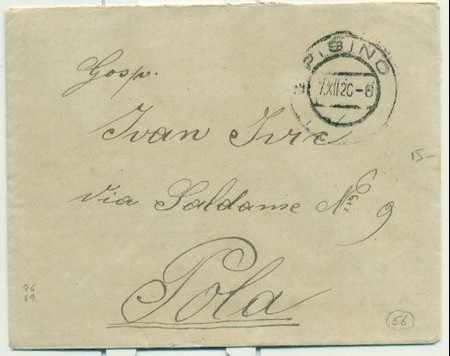 PISINO
7.XII 20-8
Gosp.
Ivan Ivic
15-
via Saldame No 9
Pola
26
69.
56